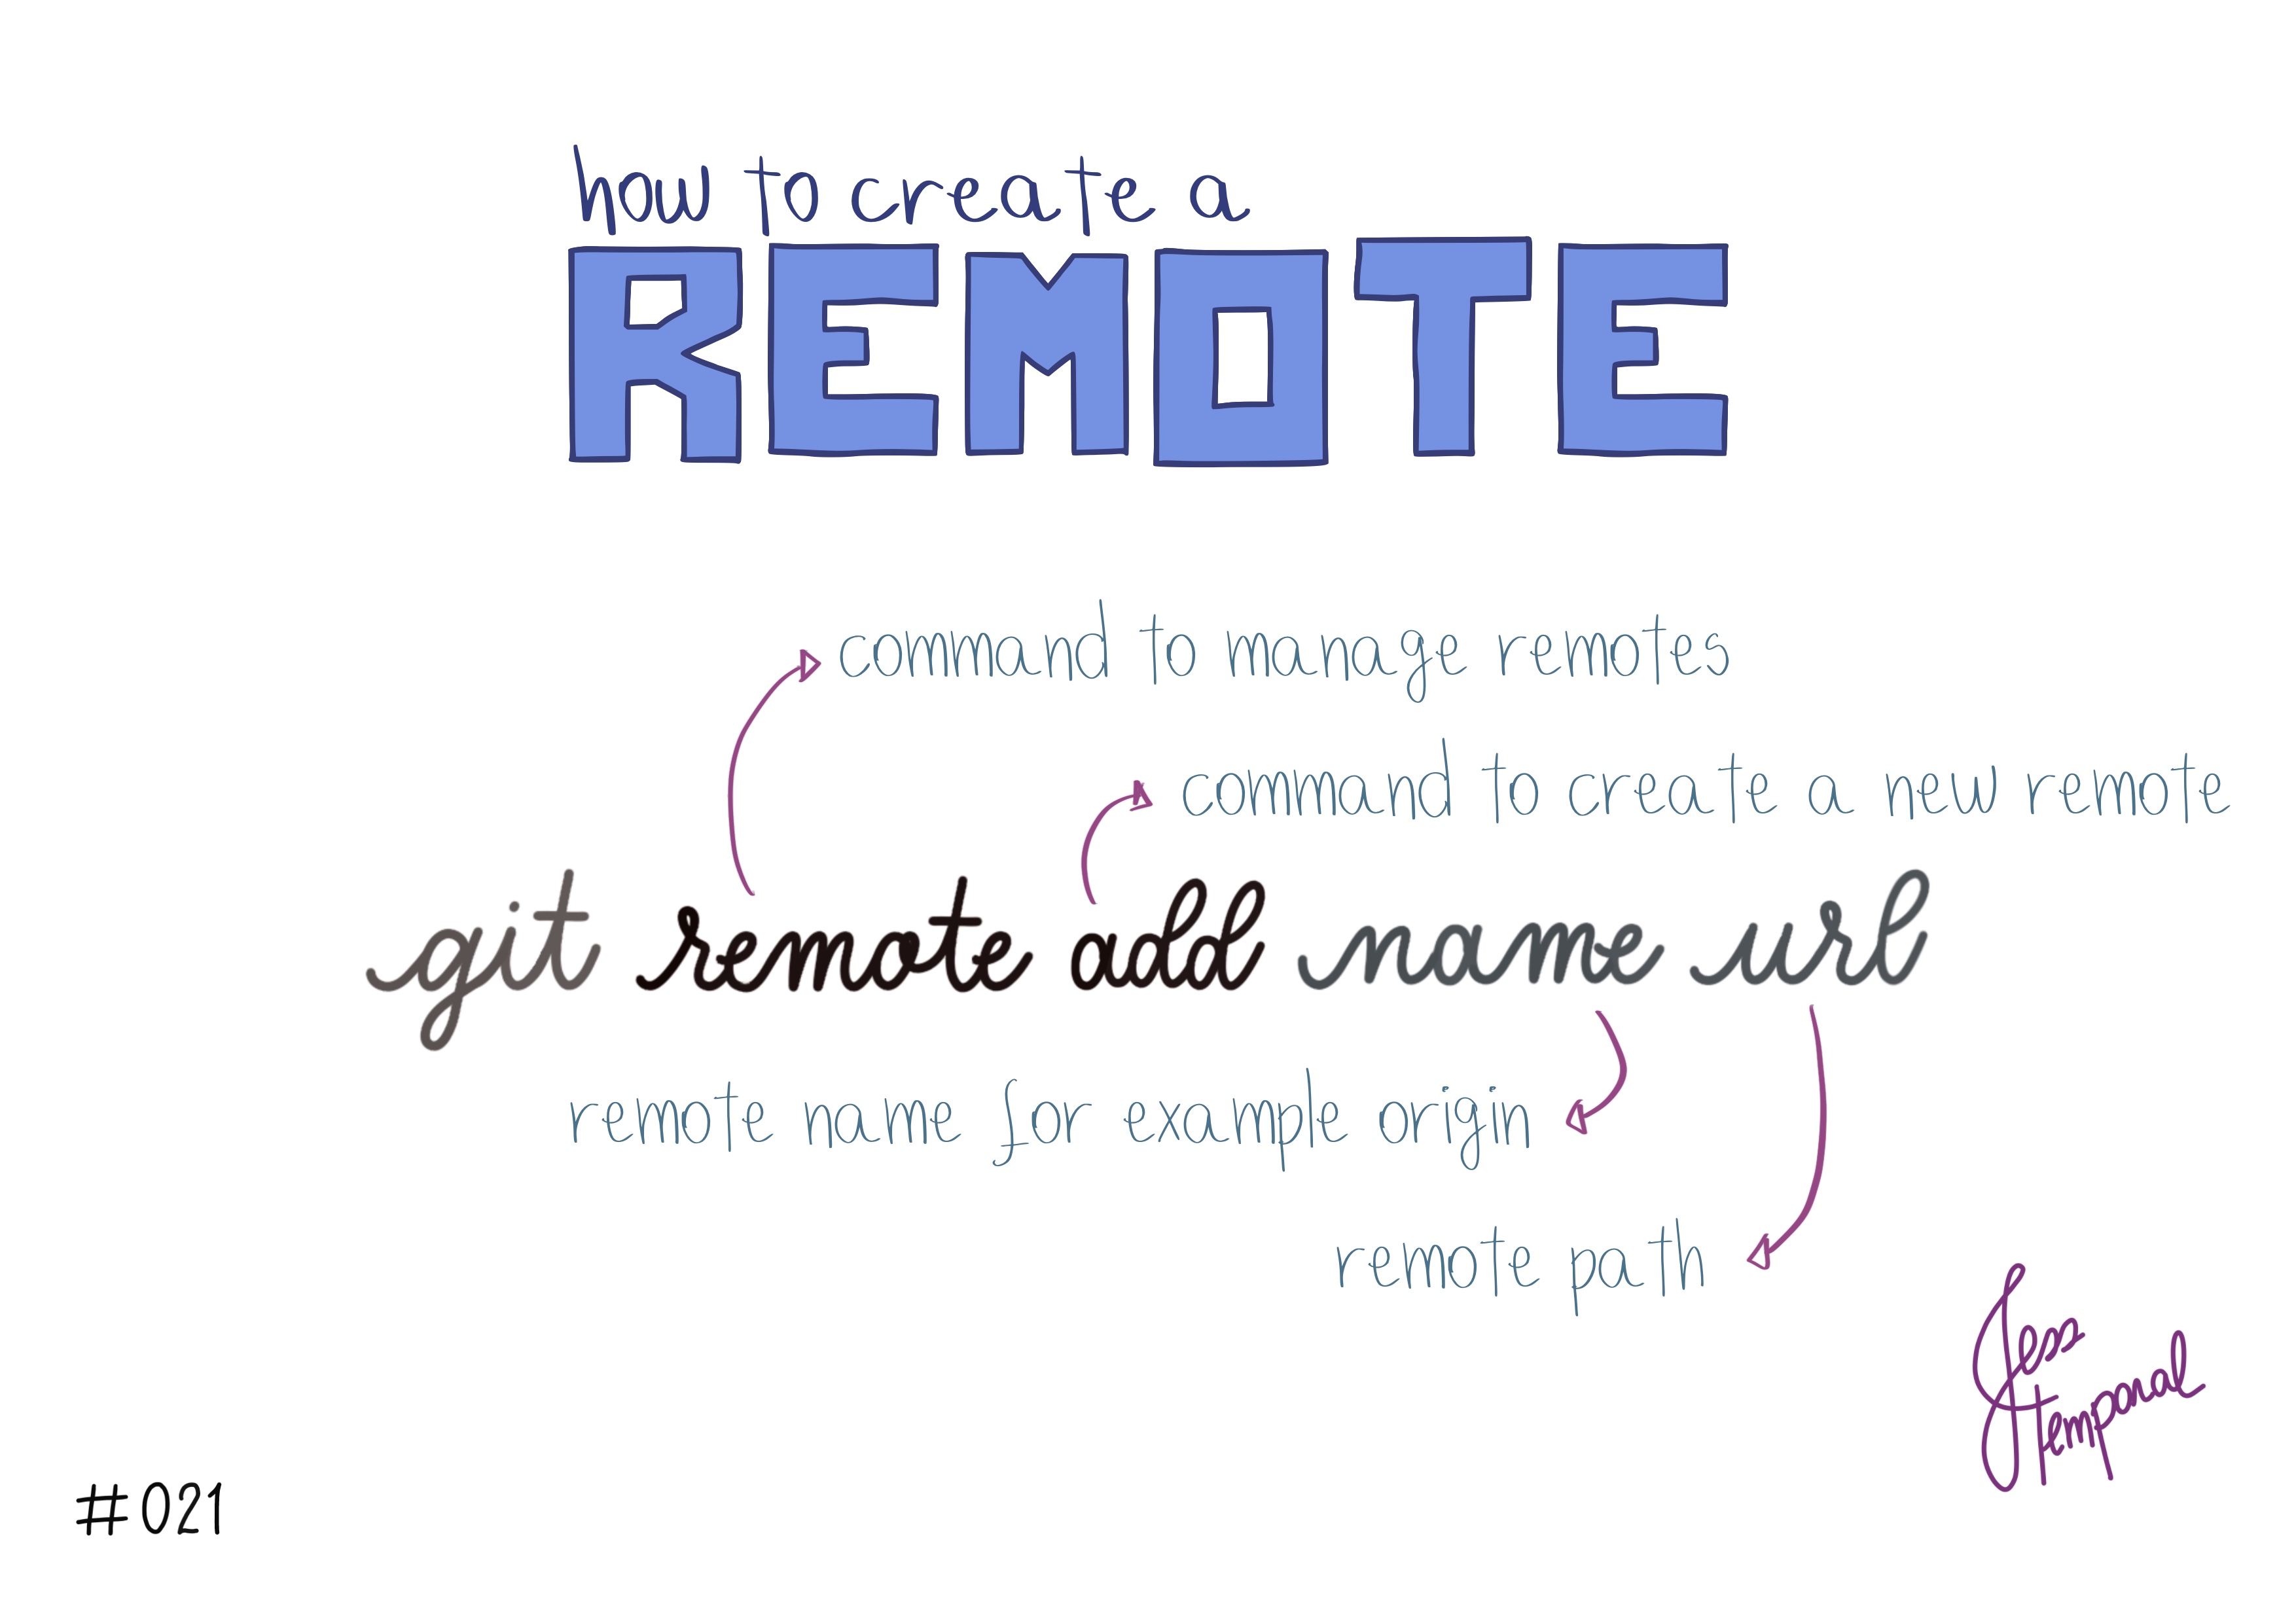 how to create a
REMOTE
command to manage remotes
command to create a new remote
git remote add name url
remote name for example origin
remote path
Jess
Temporal
#021